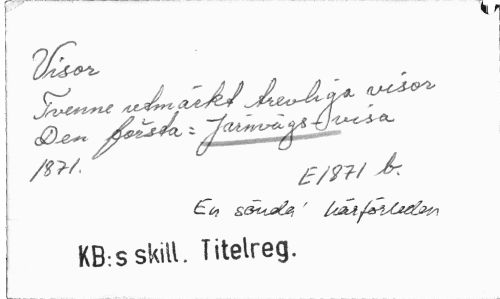 Visor
Tvenne utmärkt trevliga visor
Den första: Järnvägs-visa
1871.
E1871 b.
En sönda' härförleden
KB:s skill. Titelreg.